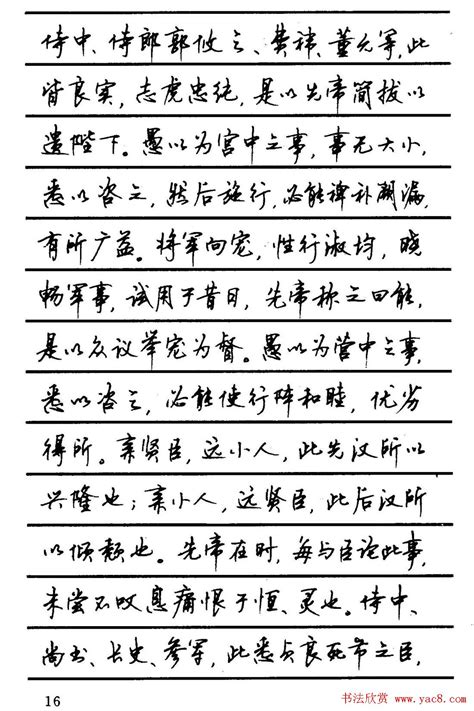 侍中、侍郎郭攸之、费祎、董允等，此
皆良实，志虑忠纯，是以先帝简拔以
遗陛下。愚以为宫中之事，事无大小，
悉以咨之，然后施行，必能裨补阙漏，
有所广益。将军向宠，性行淑均，晓
畅军事，试用于昔日，先帝称之曰能，
是以众议举宠为督。愚以为营中之事，
悉以咨之，必能使行阵和睦，优劣
得所。亲贤臣，远小人，此先汉所以
兴隆也；亲小人，远贤臣，此后汉所
以倾颓也。先帝在时，每与臣论此事，
未尝不叹息痛恨于恒、灵也。侍中、
尚书、长史、参军，此悉贞良死节之臣，
16
书法欣赏 www.yac8.com